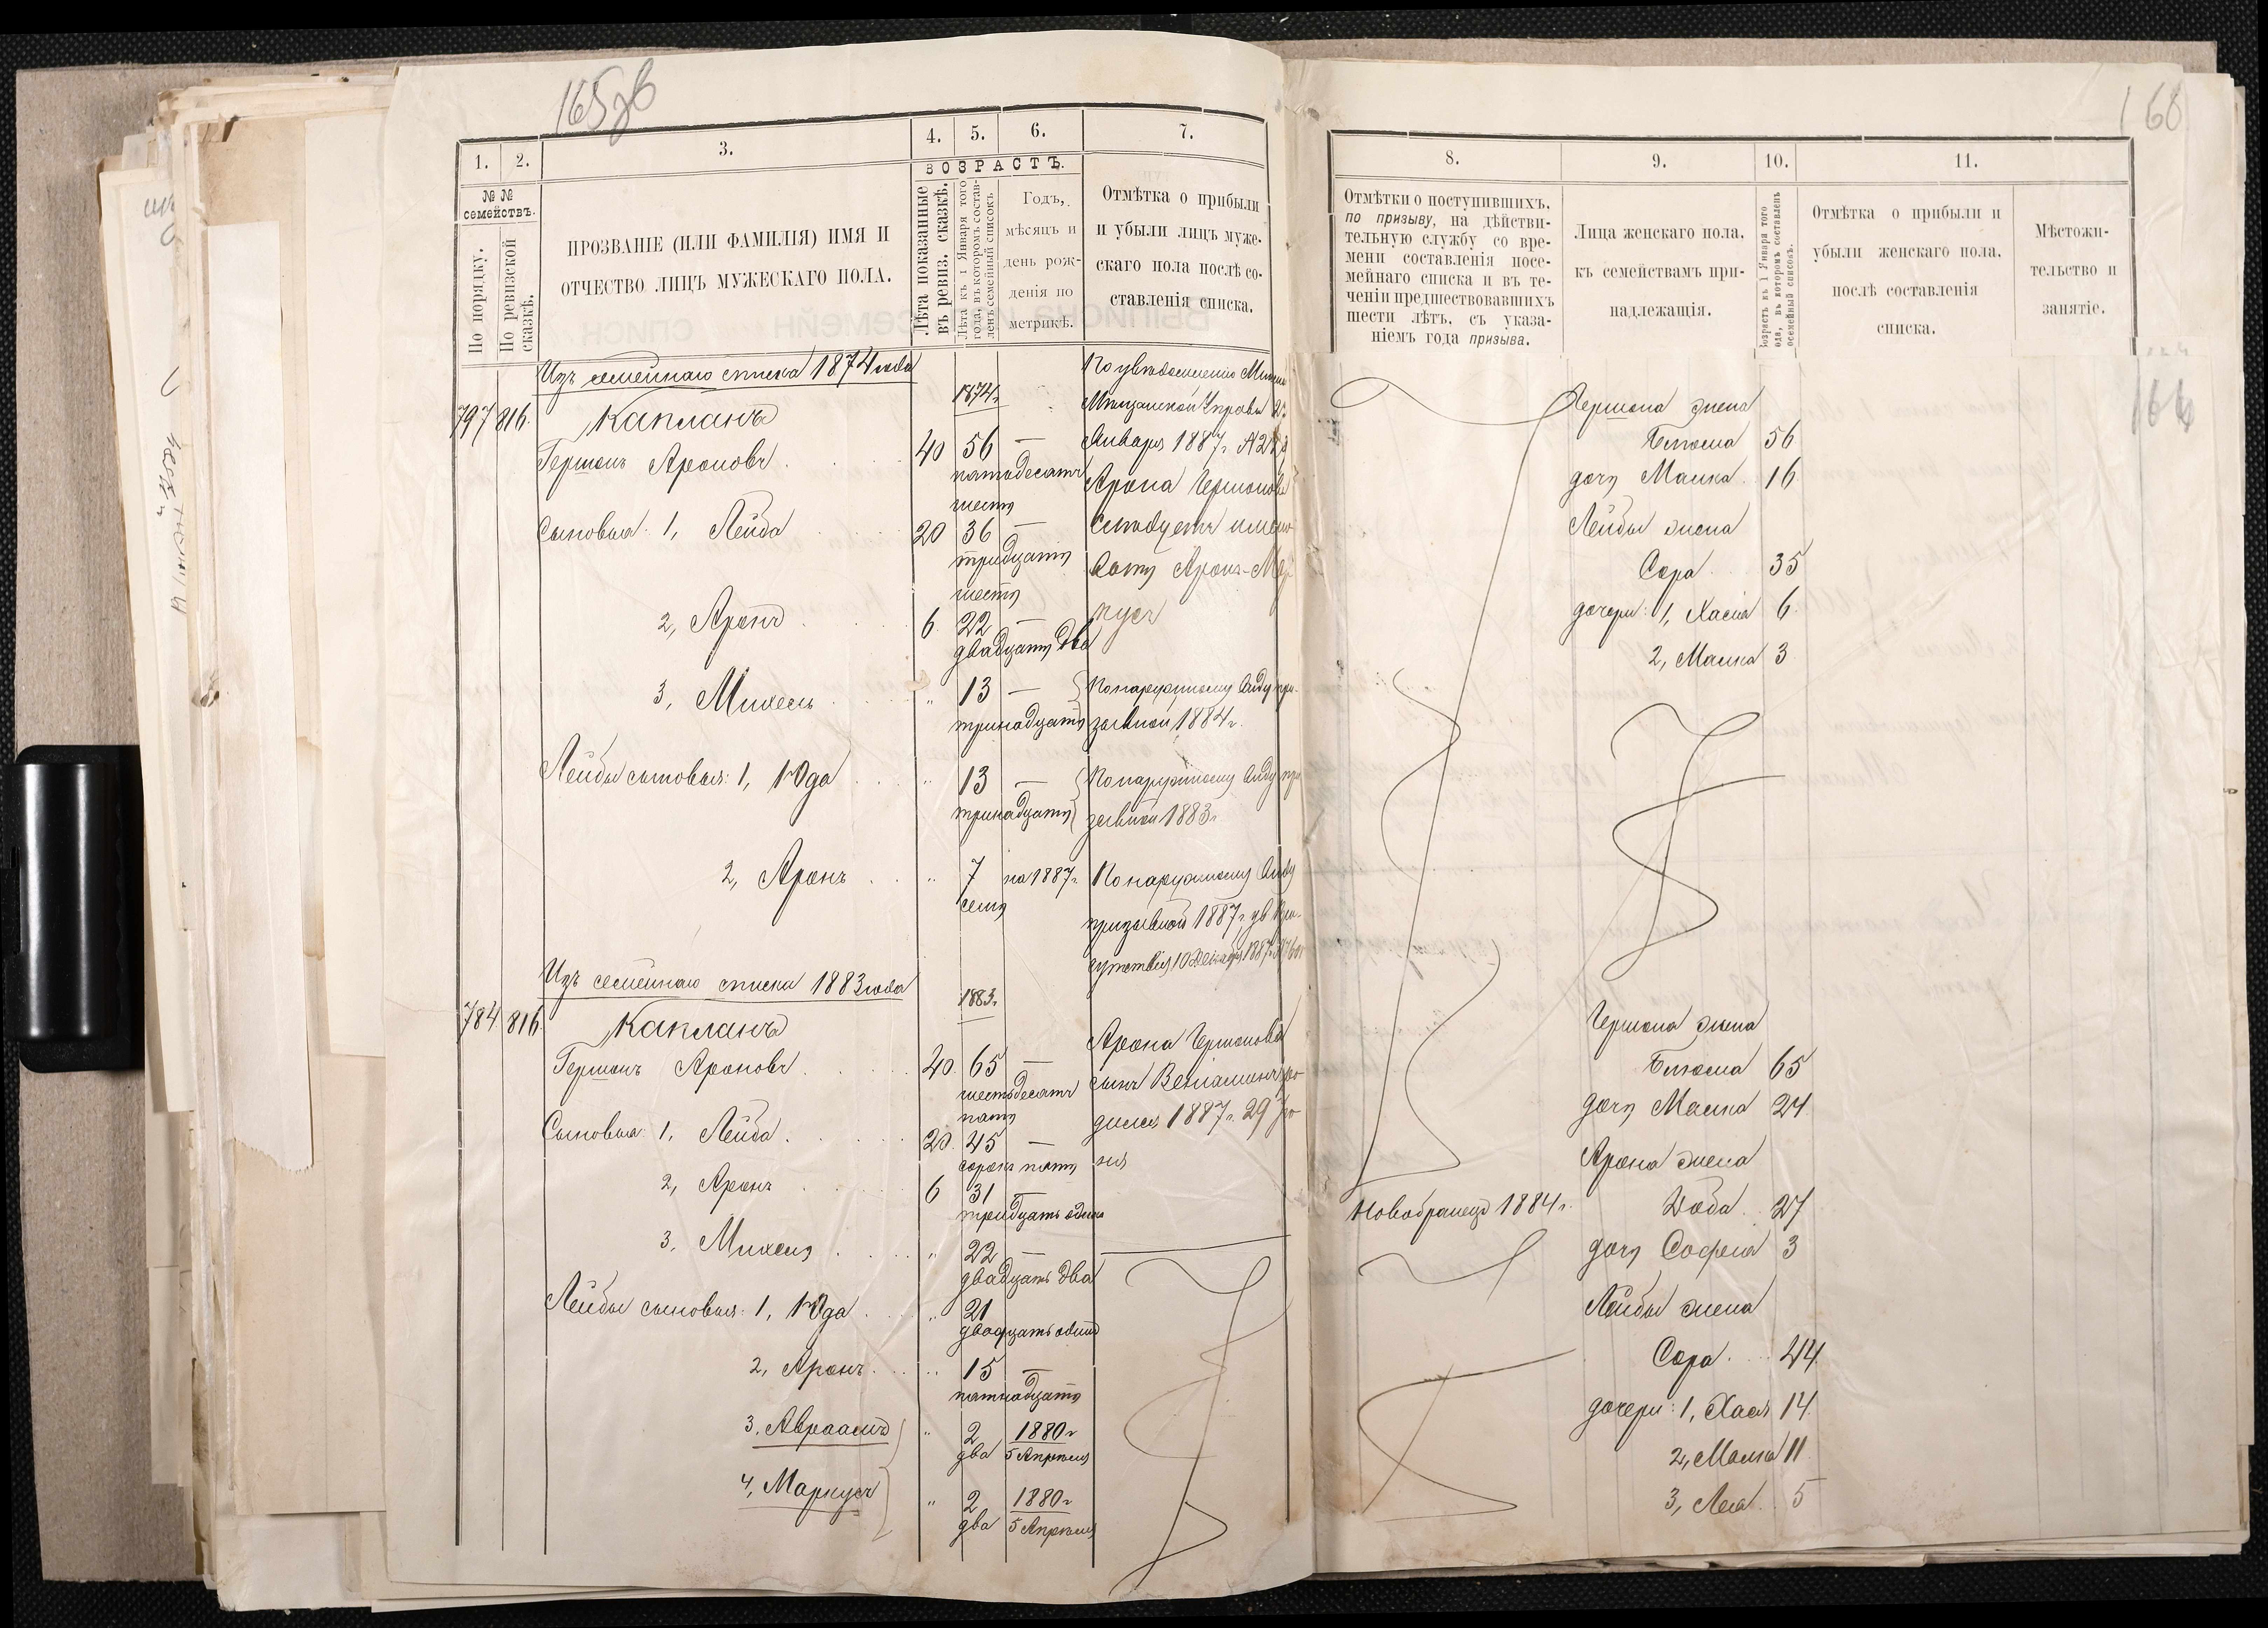 165 об
1. 2. 3. 4. 5. 6. 7.
№ № семействъ.
По порядку.
По ревизской сказкѣ.
ПРОЗВАНІЕ (ИЛИ ФАМИЛІЯ) ИМЯ И
ОТЧЕСТВО ЛИЦЪ МУЖЕСКАГО ПОЛА.
ВОЗРАСТЪ.
Лѣта показанные въ ревиз. сказкѣ.
Лѣта къ 1 Января того года, въ которомъ составленъ семейный списокъ
Годъ,
мѣсяцъ и
день рож-
денія по
метрикѣ.
Отмѣтка о прибыли
и убыли лицъ муже-
скаго пола послѣ со-
ставленія списка.
Изъ семейнаго списка 1874 года
1874 г.
797 816. Капланъ
Гершонъ Ароновъ. 40 56 —
пятьдесятъ
шесть
Сыновья: 1, Лейба 20 36 —
тридцать
шесть
2, Аронъ 6 22 —
двадцать два
3, Михель " 13 —
тринадцать
Лейбы сыновья: 1, Юда " 13 —
тринадцать
2, Аронъ " 7 на 1887 г.
семь
По увѣдомленію
Мѣщанской Управы
Января 1887 г.
Арона Гершонова
слѣдуетъ имено-
вать Аронъ-Мар-
кусъ
По наружному виду при-
зывной 1884 г.
По наружному виду при
зывной 1883 г.
По наружному виду
призывной 1887 г.
сутствія 10 Декабря 1887 г.
Изъ семейнаго списка 1883 года
1883 г.
784 816 Капланъ
Гершонъ Ароновъ. 40. 65 —
шестьдесятъ
пять
Сыновья: 1, Лейба. 20. 45 —
сорокъ пять
2, Аронъ 6 31 —
тридцать одинъ
3, Михель " 22 —
двадцать два
Лейбы сыновья: 1, Юда. " 21
двадцать одинъ
2, Аронъ. " 15 —
пятнадцать
3, Авраамъ " 2 1880 г.
два 5 Апрѣля
4, Маркусъ " 2 1880 г.
два 5 Апрѣля
Арона Гершонова
сынъ Веніаминъ ро-
дился 1887 г. 29 Ію-
ня
166
8. 9. 10. 11.
Отмѣтки о поступившихъ,
по призыву, на дѣйстви-
тельную службу со вре-
мени составленія посе-
мейнаго списка и въ те-
ченіи предшествовавшихъ
шести лѣтъ, съ указа-
ніемъ года призыва.
Лица женскаго пола,
къ семействамъ при-
надлежащія.
Возрастъ къ 1 Января того года, въ которомъ составленъ семейный списокъ.
Отмѣтка о прибыли и
убыли женскаго пола,
послѣ составленія
списка.
Мѣстожи-
тельство и
занятіе.
166
Гершона жена
Блюма 56
дочь Малка 16
Лейбы жена
Сора 35
дочери: 1, Хася 6
2, Малка 3
Гершона жена
Блюма 65
дочь Малка 24
Арона жена
Новобранецъ 1884 г. Доба 27
дочь Софья 3
Лейбы жена
Сора. 44
дочери: 1, Хася 14
2, Малка 11
3, Лея 5